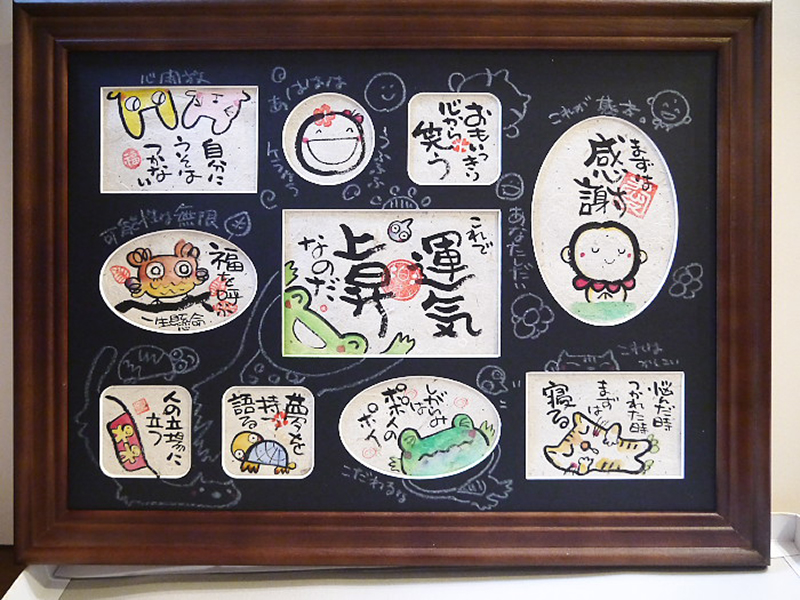 自分に
うそは
つかない
福
うふふふ
おもいっきり
心から
笑う
これが 基本。
まずは
感謝
可能性は無限
福を呼ぶ
一生懸命
これで
運気
上昇
なのだ
人の立場に
立つ
夢を
持つ
語る
しがらみ
は
ポポイの
ポイ
こだわるな
これは
悩んだ時
つかれた時
まずは
寝る